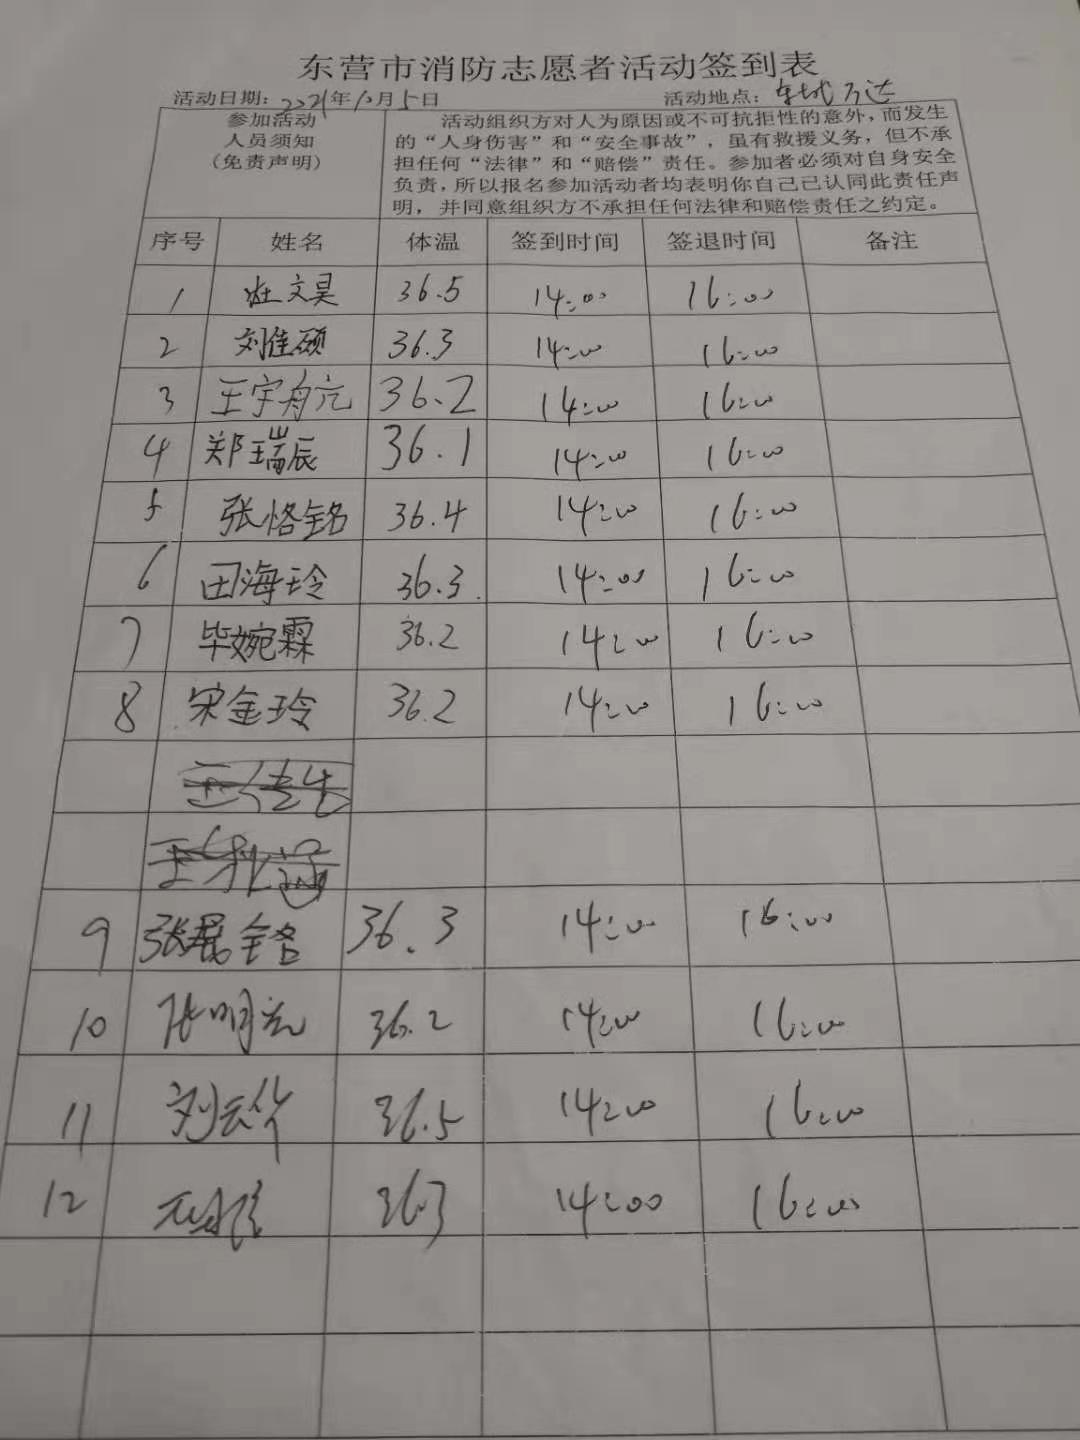 东营市消防志愿者活动签到表
活动日期：2021年10月5日 活动地点：东城万达
参加活动人员须知（免责声明）
活动组织方对人为原因或不可抗拒性的意外，而发生
的“人身伤害”和“安全事故”，虽有救援义务，但不承
担任何“法律”和“赔偿”责任。参加者必须对自身安全
负责，所以报名参加活动者均表明你自己已认同此责任声
明，并同意组织方不承担任何法律和赔偿责任之约定。
序号 姓名 体温 签到时间 签退时间 备注
1 杜文昊 36.5 14:00 16:00
2 刘佳硕 36.3 14:00 16:00
3 王宇舟亢 36.2 14:00 16:00
4 郑瑞辰 36.1 14:00 16:00
5 张恪铭 36.4 14:00 16:00
6 田海玲 36.3 14:00 16:00
7 毕婉霖 36.2 14:00 16:00
8 宋金玲 36.2 14:00 16:00
9 张展铭 36.3 14:00 16:00
10 张明 36.2 14:00 16:00
11 刘云华 36.5 14:00 16:00
12 36.3 14:00 16:00